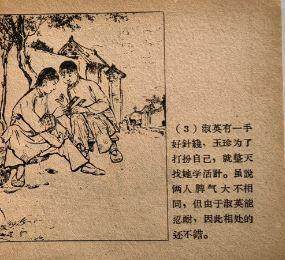 （3）淑英有一手
好針綫，玉珍为了
打扮自己，就整天
找她学活計。虽說
俩人脾气大不相
同，但由于淑英能
忍耐，因此相处的
还不錯。